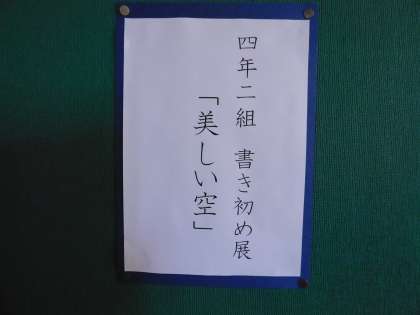 四年二組　書き初め展
「美しい空」